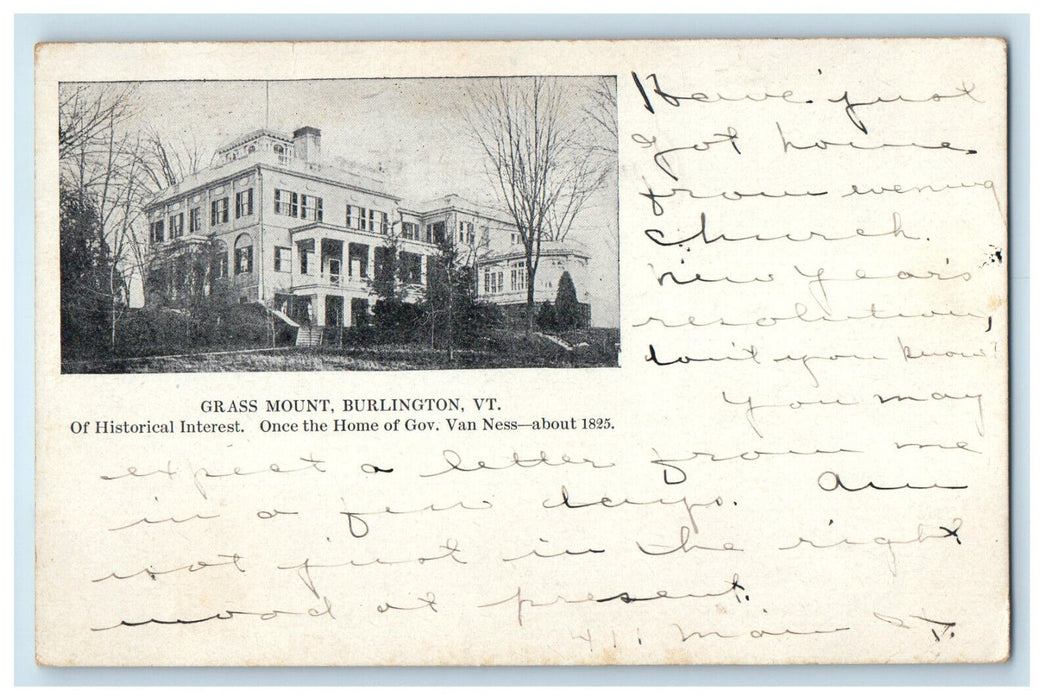 GRASS MOUNT, BURLINGTON, VT.
Of Historical Interest. Once the Home of Gov. Van Ness—about 1825.
Have just
got home
from evening
Church.
New Year's
resolution,
don't you know?
You may
expect a letter from me
in a few days. Am
not just in the right
mood at present.
411 Main St.